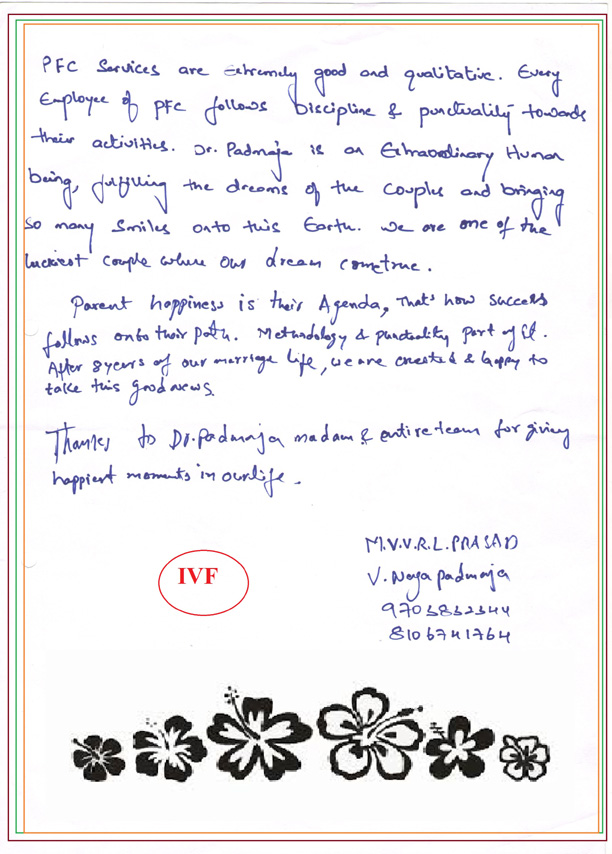 PFC Services are Extremely good and qualitative. Every
Employee of PFC follows Discipline & punctuality towards
their activities. Dr. Padmaja is an Extraordinary Human
being, fulfilling the dreams of the couples and bringing
so many smiles onto this Earth. We are one of the
luckiest couple where our dream cometrue.
Parent happiness is their Agenda, That's how success
follows onto their path. Methodology & punctuality part of it.
After 8years of our marriage life, we are & happy to
take this good news.
Thanks to Dr. Padmaja madam & entire team for giving
happiest moments in our life.
M.V.V.R.L. PRASAD
V. Naga padmaja
9703832344
8106741764
IVF